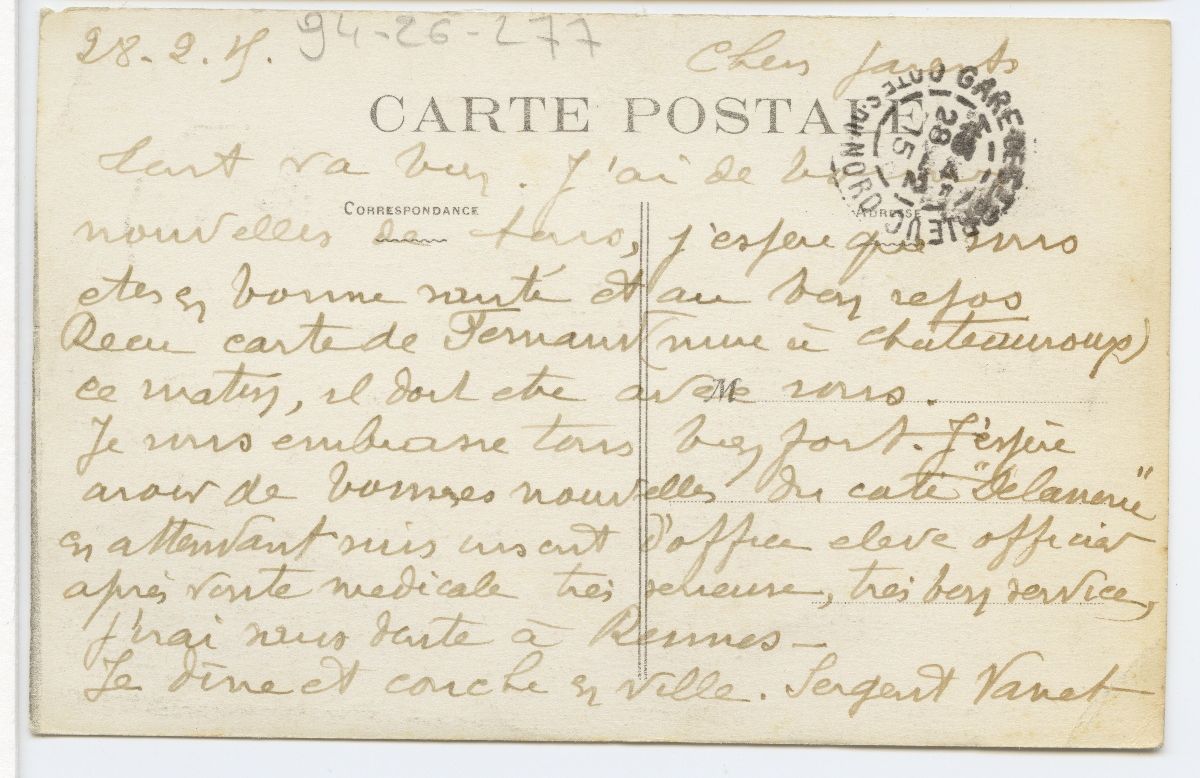 28.2.15. 94-26-277
Chers parents
CARTE POSTALE
Tout va bien. J'ai de bonnes
CORRESPONDANCE
ADRESSE
nouvelles de tous, j'espère que vous
etes en bonne santé et au bon repos
Recu carte de Fernand (mme à Chateauroux)
ce matin, il doit etre avec vous.
M
Je vous embrasse tous bien fort. J'espère
avoir de bonnes nouvelles du coté "Delanoue"
en attendant suis inscrit d'office eleve officier
après visite medicale très serieuse, très bon service,
j'irai sans doute à Rennes -
Je dine et couche en ville. Sergent Vanet
GARE DE ST BRIEUC
COTES-DU-NORD
28 - 2
15